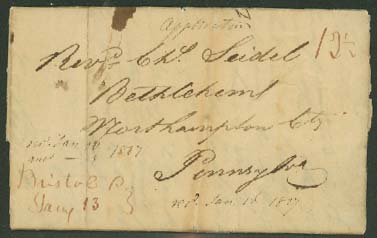 Application
Revd. Chs. Seidel
Bethlehem
Northampton Cty
Pennsylva
recd. Jan 16 1827
Bristol Pa
Jany 13
recd. Jan. 16 1827